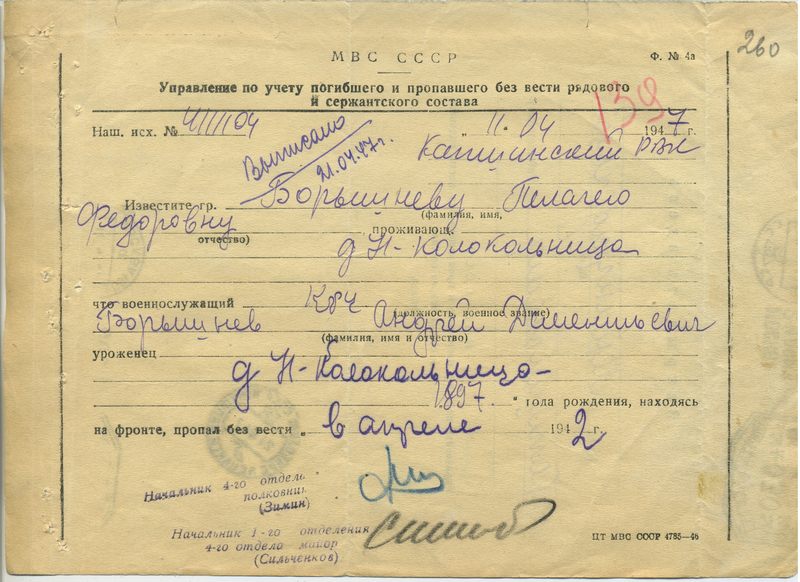 260
МВС СССР
Ф. № 4а
Управление по учету погибшего и пропавшего без вести рядового
и сержантского состава
139
Наш. исх. № 4/11104 " 11.04 1947 г.
Выписано
21.04.47г.
Капшинский РВК
Известите гр. Борышневу Пелагею
(фамилия, имя,
Федоровну проживающ.
отчество)
д Н-Колокольница
что военнослужащий
(должность, военное звание)
Борышнев Андрей Дементьевич
(фамилия, имя и отчество)
уроженец
д Н-Колокольница
1897. " года рождения, находясь
на фронте, пропал без вести " в апреле 1942 г.
Начальник 4-го отдела
полковник
(Зимин)
Начальник 1-го отделения
4-го отдела майор
(Сильченков)
ЦТ МВС СССР 4785—46